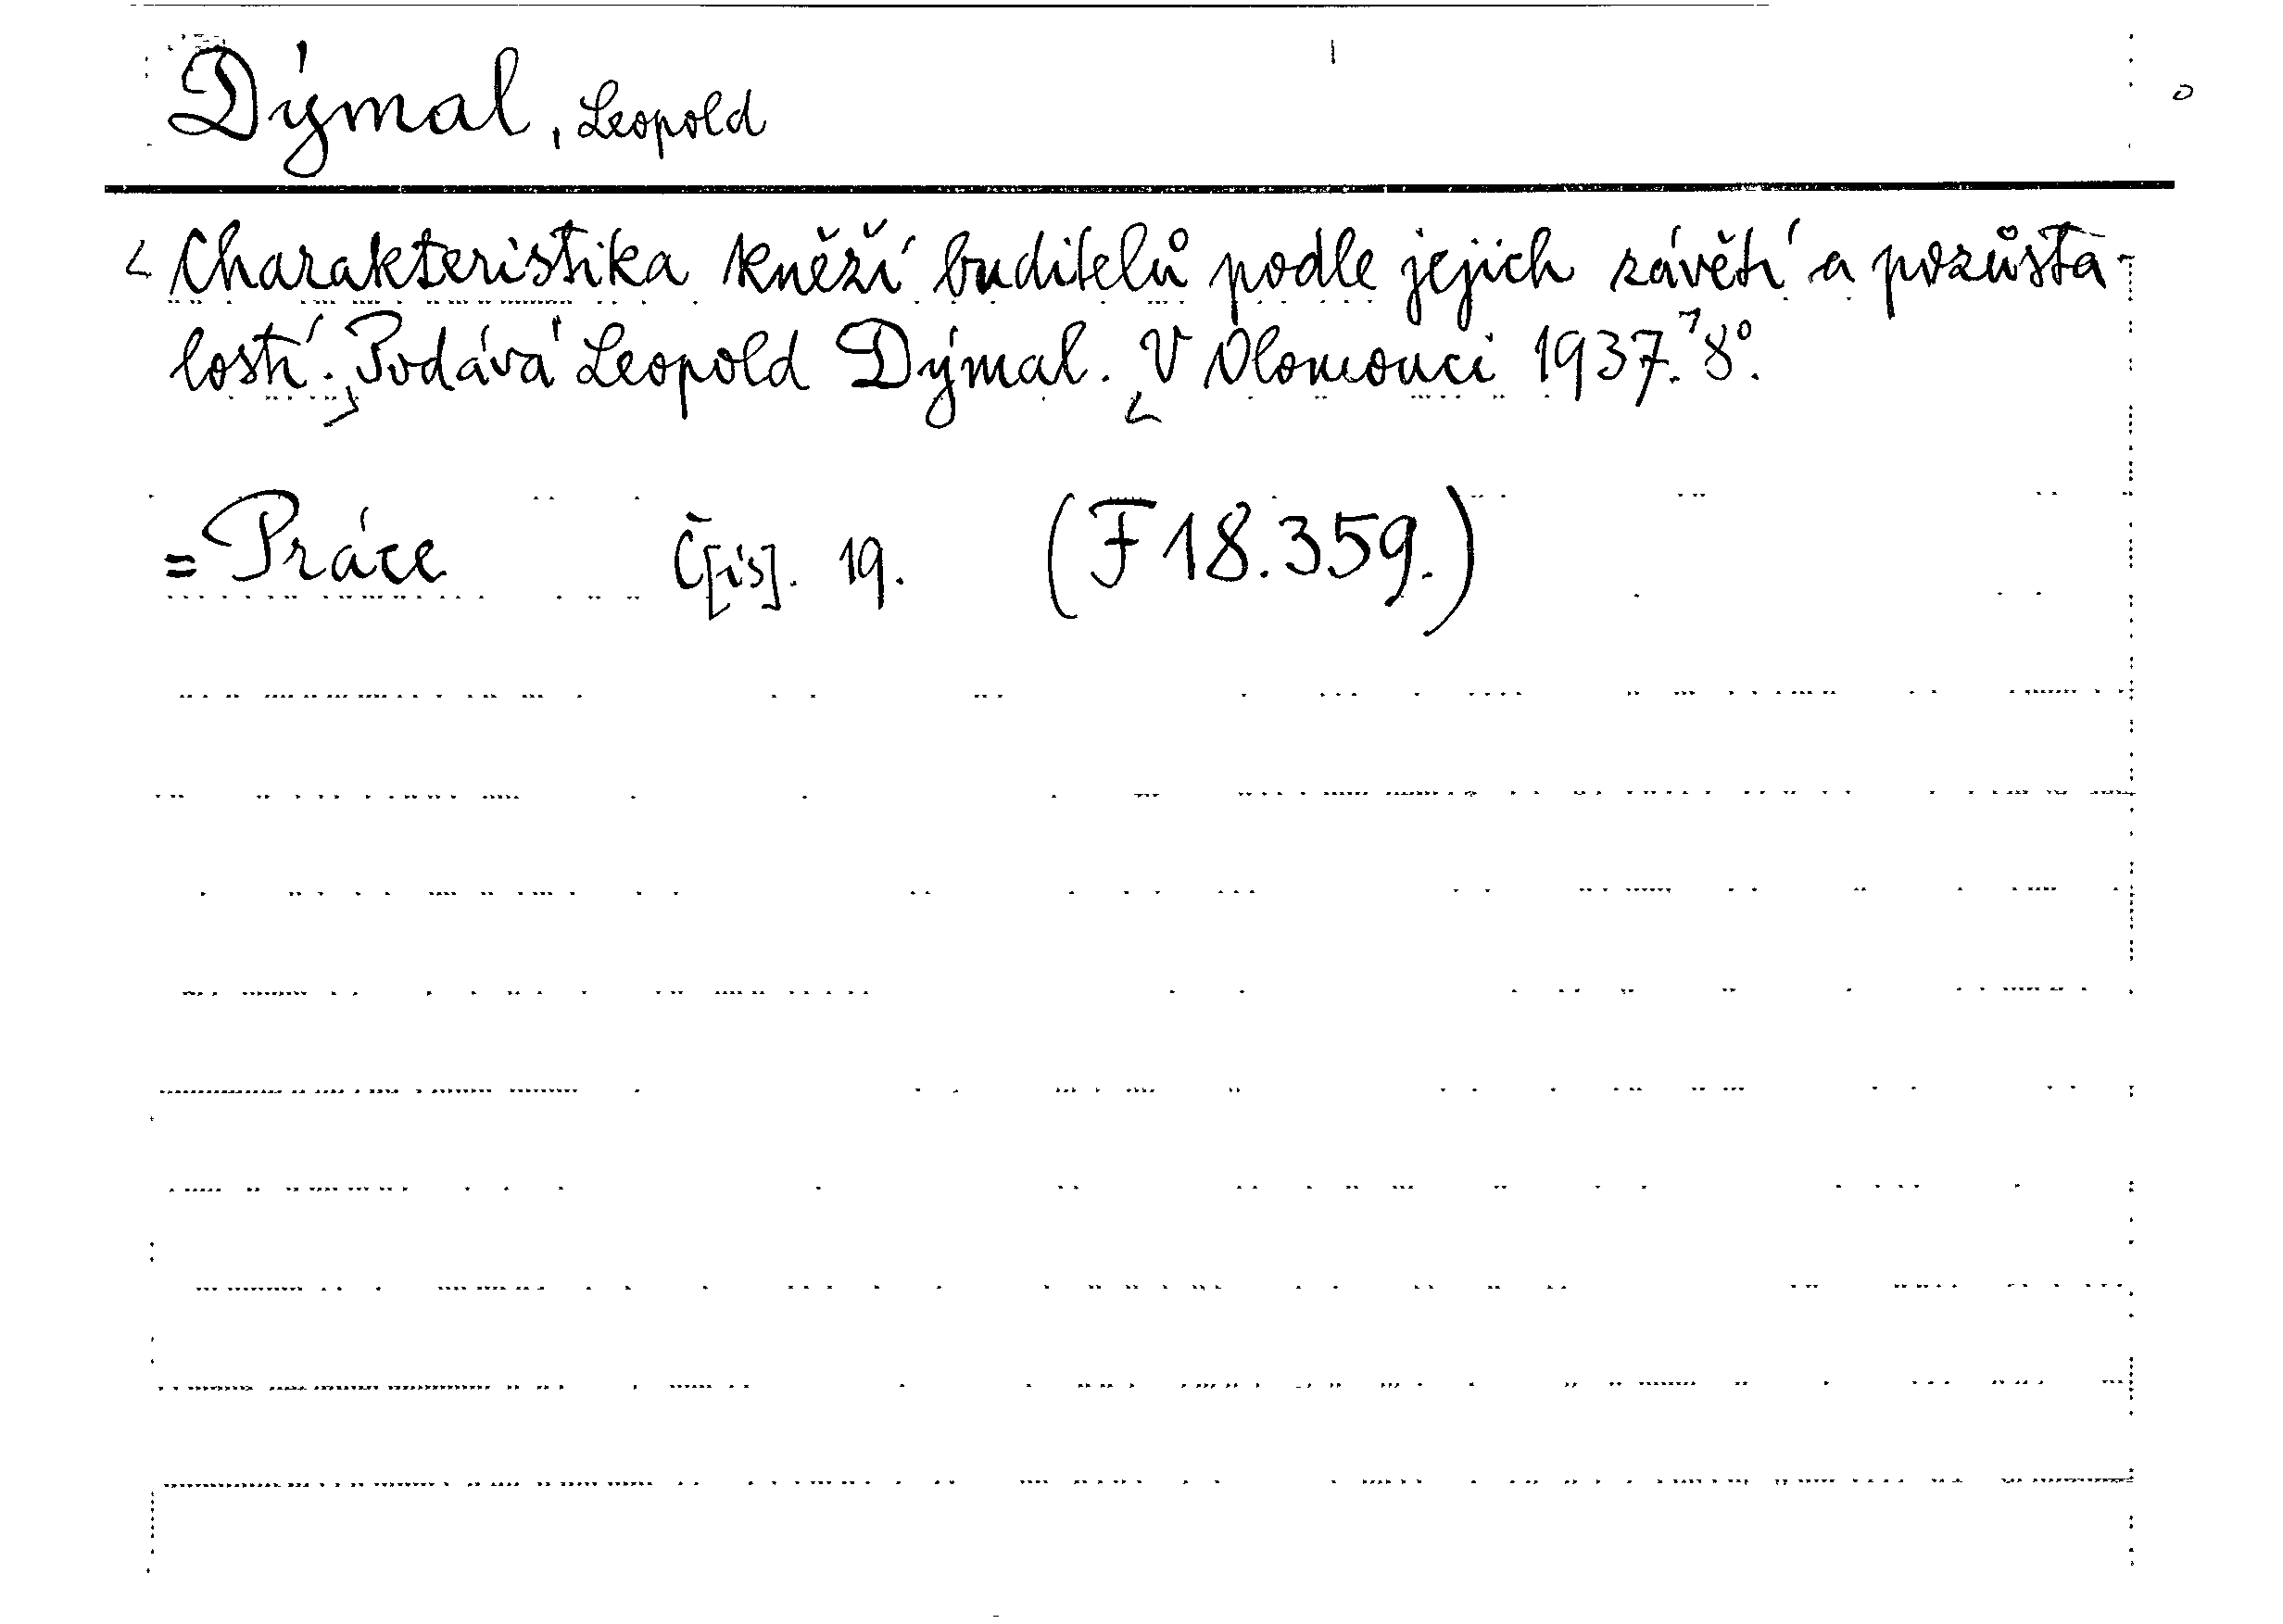 Dýmal, Leopold
Charakteristika kněží buditelů podle jejich závětí a pozůsta-
lostí. Podává Leopold Dýmal. V Olomouci 1937. 8°.
= Práce Č[ís]. 19. (F 18.359.)